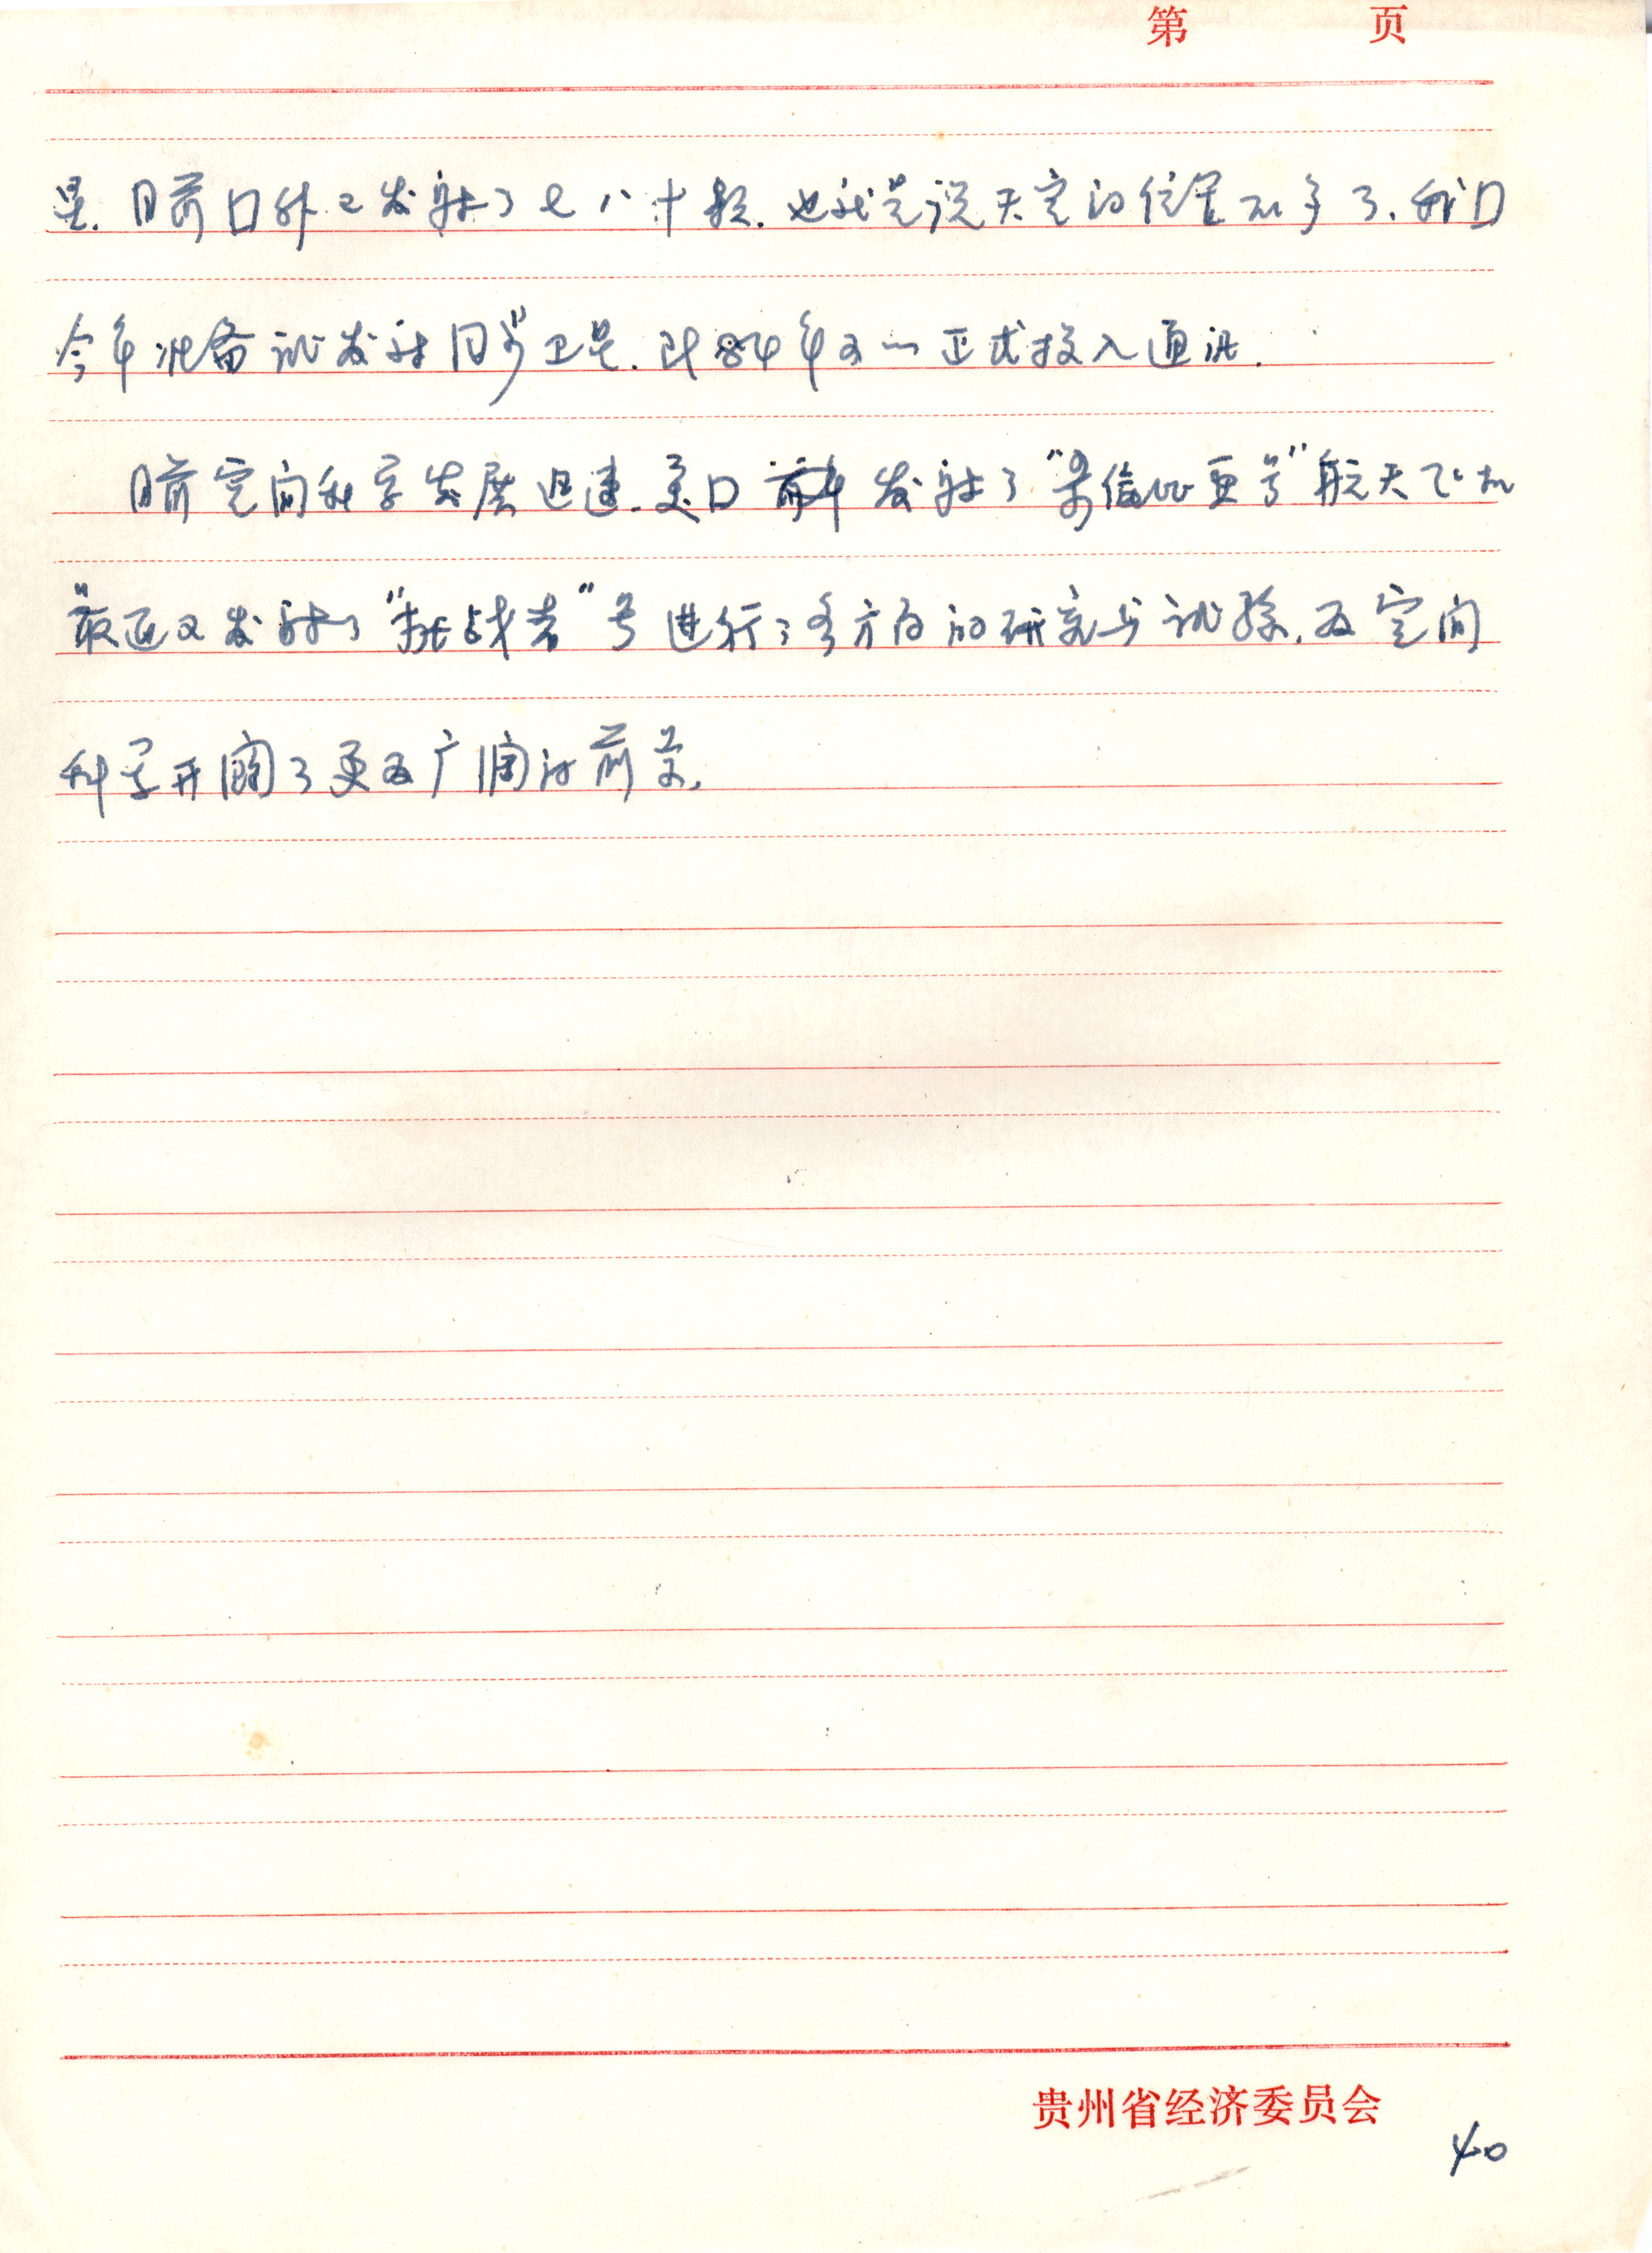 第 页
星.目前口外已发射了七八十颗.也就是说天空的位置不多了.我口
今年准备试发射同步卫星.时84年五一正式投入通讯.
目前空间科学发展迅速.美口 发射了"号"航天飞机
最近又发射了"挑战者"号进行了多方面的研究与试验.为空间
科学开阔了更为广阔的前景.
贵州省经济委员会
40